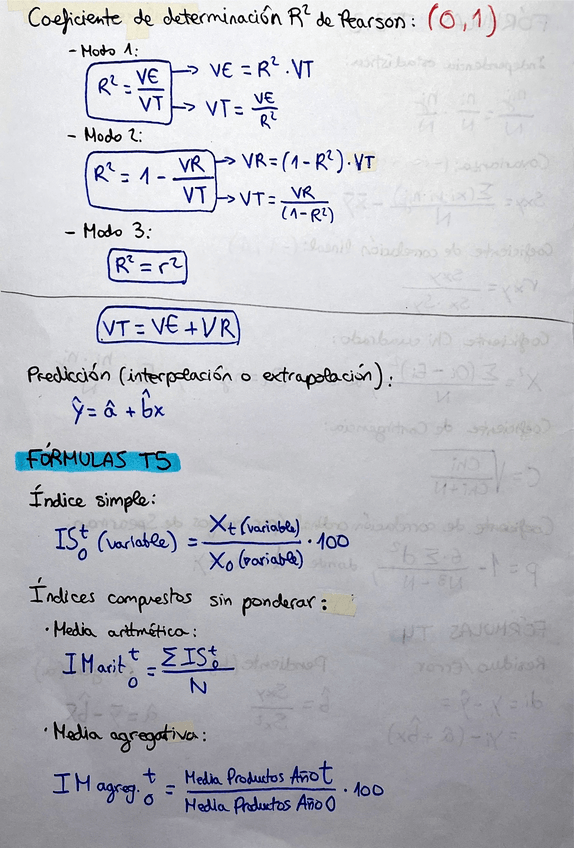 Coeficiente de determinación R² de Pearson: (0,1)
- Modo 1:
R² = VE/VT → VE = R² · VT
→ VT = VE/R²
- Modo 2:
R² = 1 - VR/VT → VR = (1 - R²) · VT
→ VT = VR/(1-R²)
- Modo 3:
R² = r²
VT = VE + VR
Predicción (interpolación o extrapolación):
ŷ = â + b̂x
FÓRMULAS T5
Índice simple:
IS₀ᵗ (variable) = Xt (variable)/X₀ (variable) · 100
Índices compuestos sin ponderar:
· Media aritmética:
IMarit₀ᵗ = Σ IS₀ᵗ/N
· Media agregativa:
IMagreg.₀ᵗ = Media Productos Año t/Media Productos Año 0 · 100